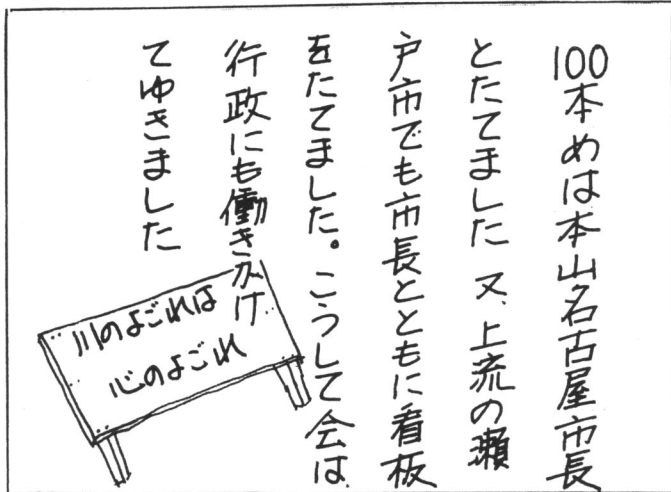 100本めは本山名古屋市長
とたてました 又、上流の瀬
戸市でも市長とともに看板
をたてました。こうして会は
行政にも働きかけ
てゆきました
川のよごれは
心のよごれ